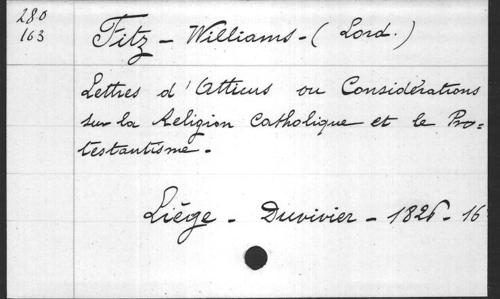 280
163
Fitz - Williams - ( Lord. )
Lettres d'Atticus ou Considérations
sur la Religion Catholique et le Pro=
testantisme.
Liège - Duvivier - 1826 - 16